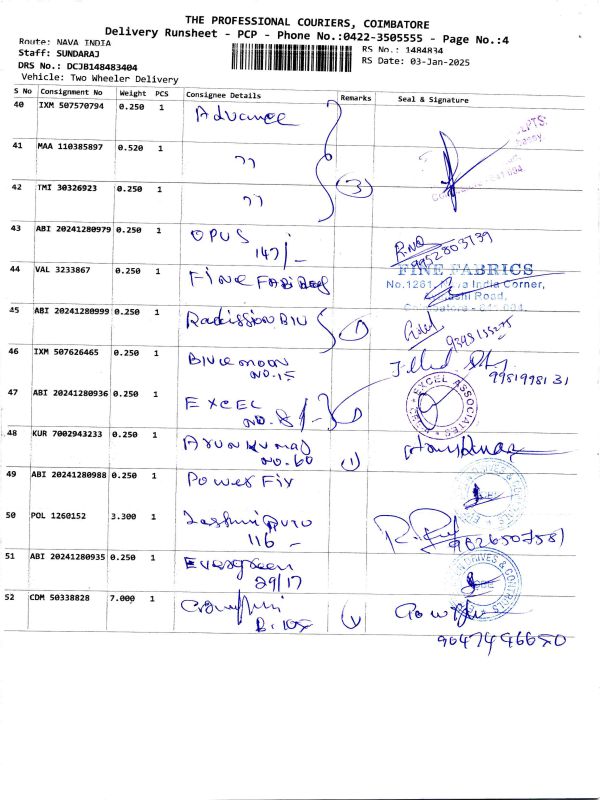 THE PROFESSIONAL COURIERS, COIMBATORE
Delivery Runsheet - PCP - Phone No.:0422-3505555 - Page No.:4
Route: NAVA INDIA
RS No.: 1484834
Staff: SUNDARAJ
RS Date: 03-Jan-2025
DRS No.: DCJB148483404
Vehicle: Two Wheeler Delivery
S No Consignment No Weight PCS Consignee Details Remarks Seal & Signature
40 IXM 507570794 0.250 1 Advance
41 MAA 110385897 0.520 1 ,,
42 TMI 30326923 0.250 1 ,, 3
43 ABI 20241280979 0.250 1 OPUS
147/-
9952803739
44 VAL 3233867 0.250 1 Fine Fabires
FINE FABRICS
No.1261, Nava India Corner,
Road,
45 ABI 20241280999 0.250 1 Radission Blu 1
46 IXM 507626465 0.250 1 Blue moon
NO.15
9981998131
47 ABI 20241280936 0.250 1 EXCEL
NO.81-3
EXCEL ASSOCIATES
48 KUR 7002943233 0.250 1 Arun Kumar
NO.60 1
49 ABI 20241280988 0.250 1 Power Fix
50 POL 1260152 3.300 1
116 -
9026507581
51 ABI 20241280935 0.250 1 Evergreen
29/17
DRIVES & CONTROLS
52 CDM 50338828 7.000 1
9047446650